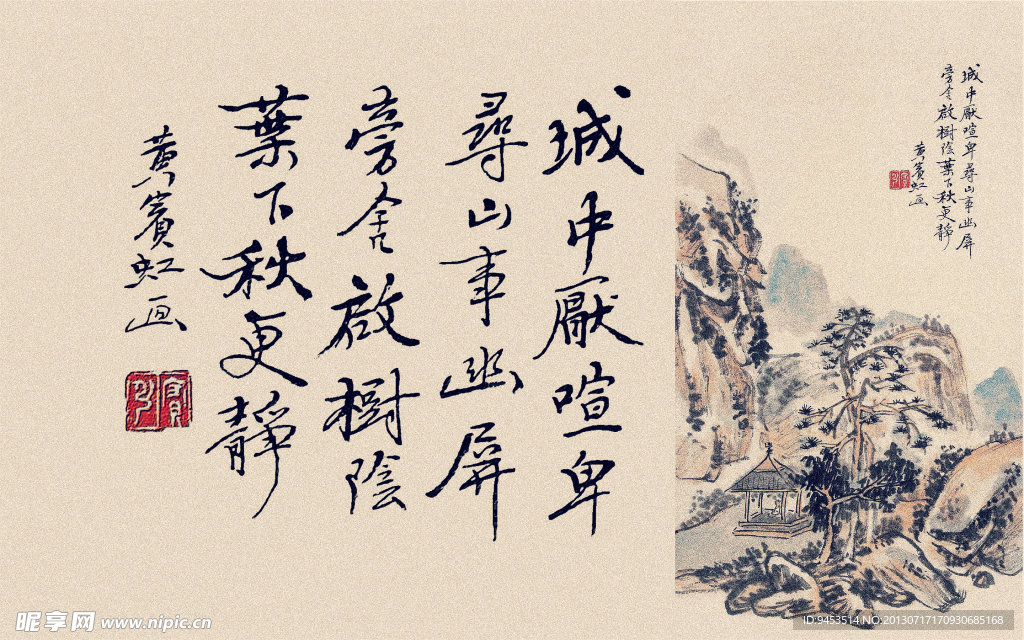 城中厭喧卑
尋山事幽屏
旁舍啟樹陰
葉下秋更靜
黄賓虹画
城中厭喧卑尋山事幽屏
旁舍啟樹陰葉下秋更靜
黄賓虹画
昵享网 www.nipic.cn
ID:9453514 NO:20130717170930685168